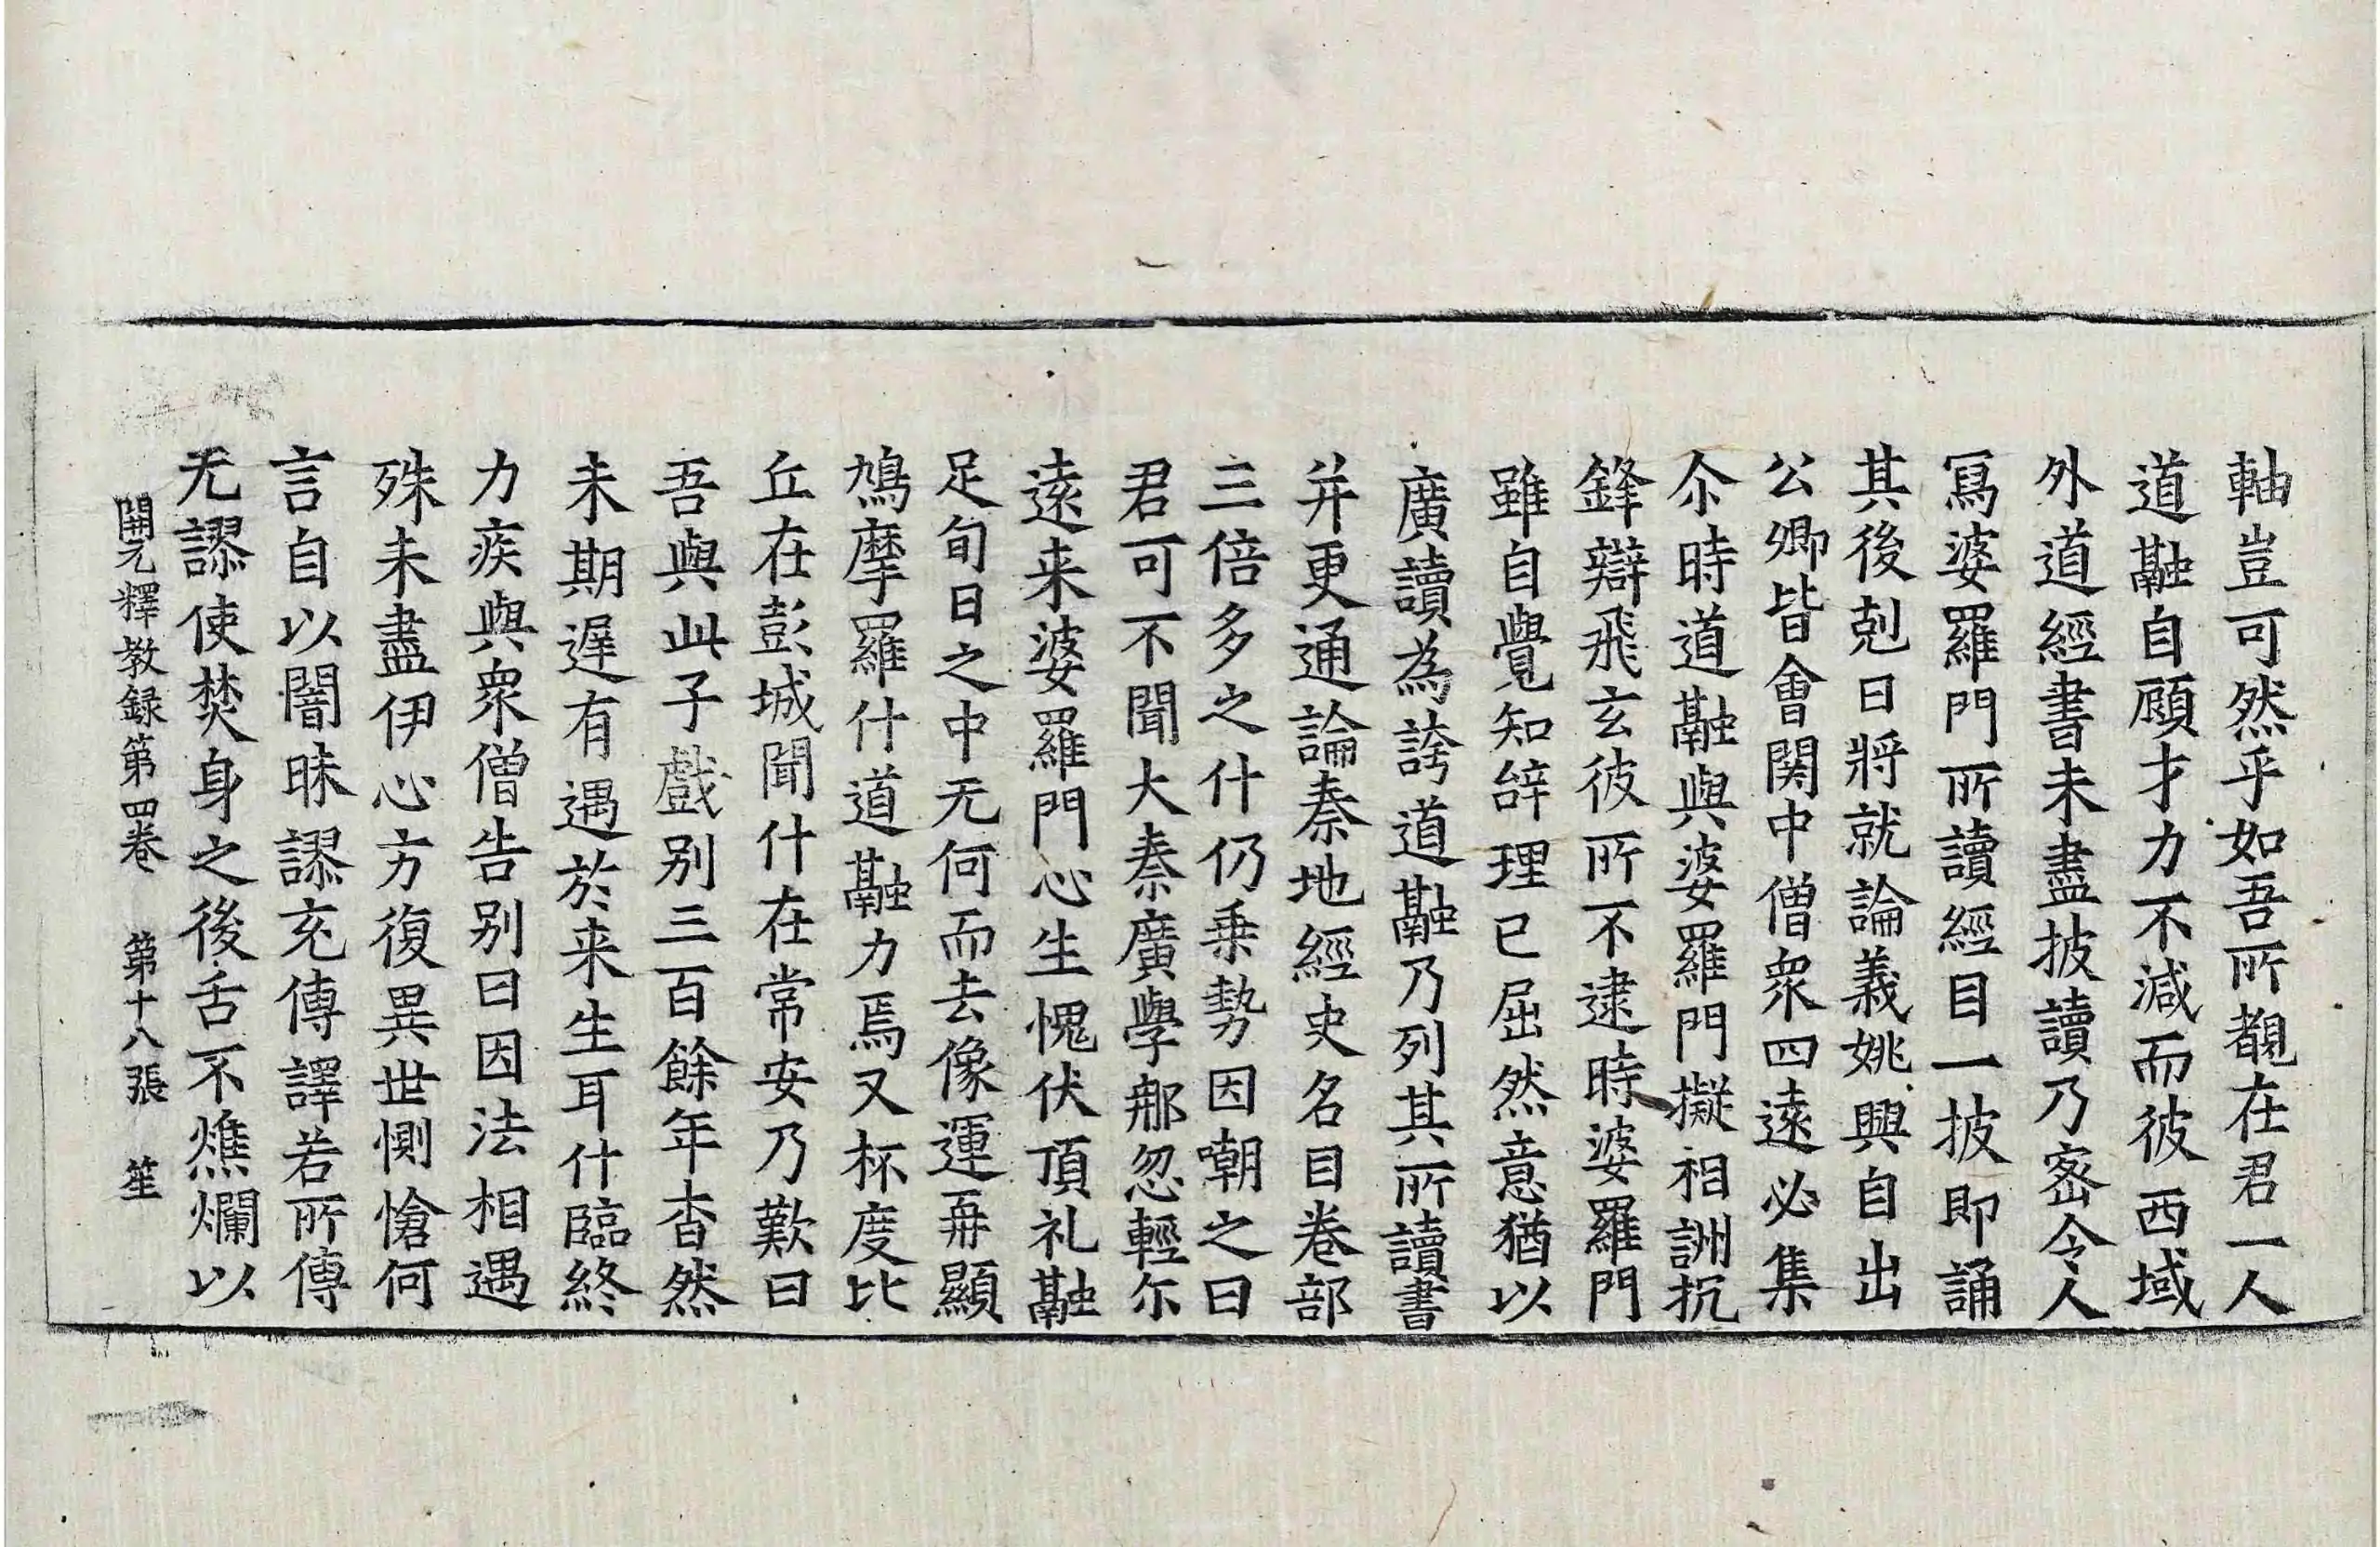 軸豈可然乎如吾所覩在君一人
道融自顧才力不減而彼西域
外道經書未盡披讀乃密令人
寫婆羅門所讀經目一披即誦
其後剋日將就論義姚興自出
公卿皆會関中僧衆四遠必集
尒時道融與婆羅門擬相詶抗
鋒辯飛玄彼所不逮時婆羅門
雖自覺知辝理已屈然意猶以
廣讀為誇道融乃列其所讀書
并更通論秦地經史名目卷部
三倍多之什仍乗勢因嘲之曰
君可不聞大秦廣學那忽輕尓
遠来婆羅門心生愧伏頂礼融
足旬日之中无何而去像運再顯
鳩摩羅什道融力焉又杯度比
丘在彭城聞什在常安乃歎曰
吾與此子戲别三百餘年杳然
未期遲有遇於来生耳什臨終
力疾與衆僧告别曰因法相遇
殊未盡伊心方復異世惻愴何
言自以闇昧謬充傳譯若所傳
无謬使焚身之後舌不燋爛以
開元釋教録第四卷 第十八張 笙